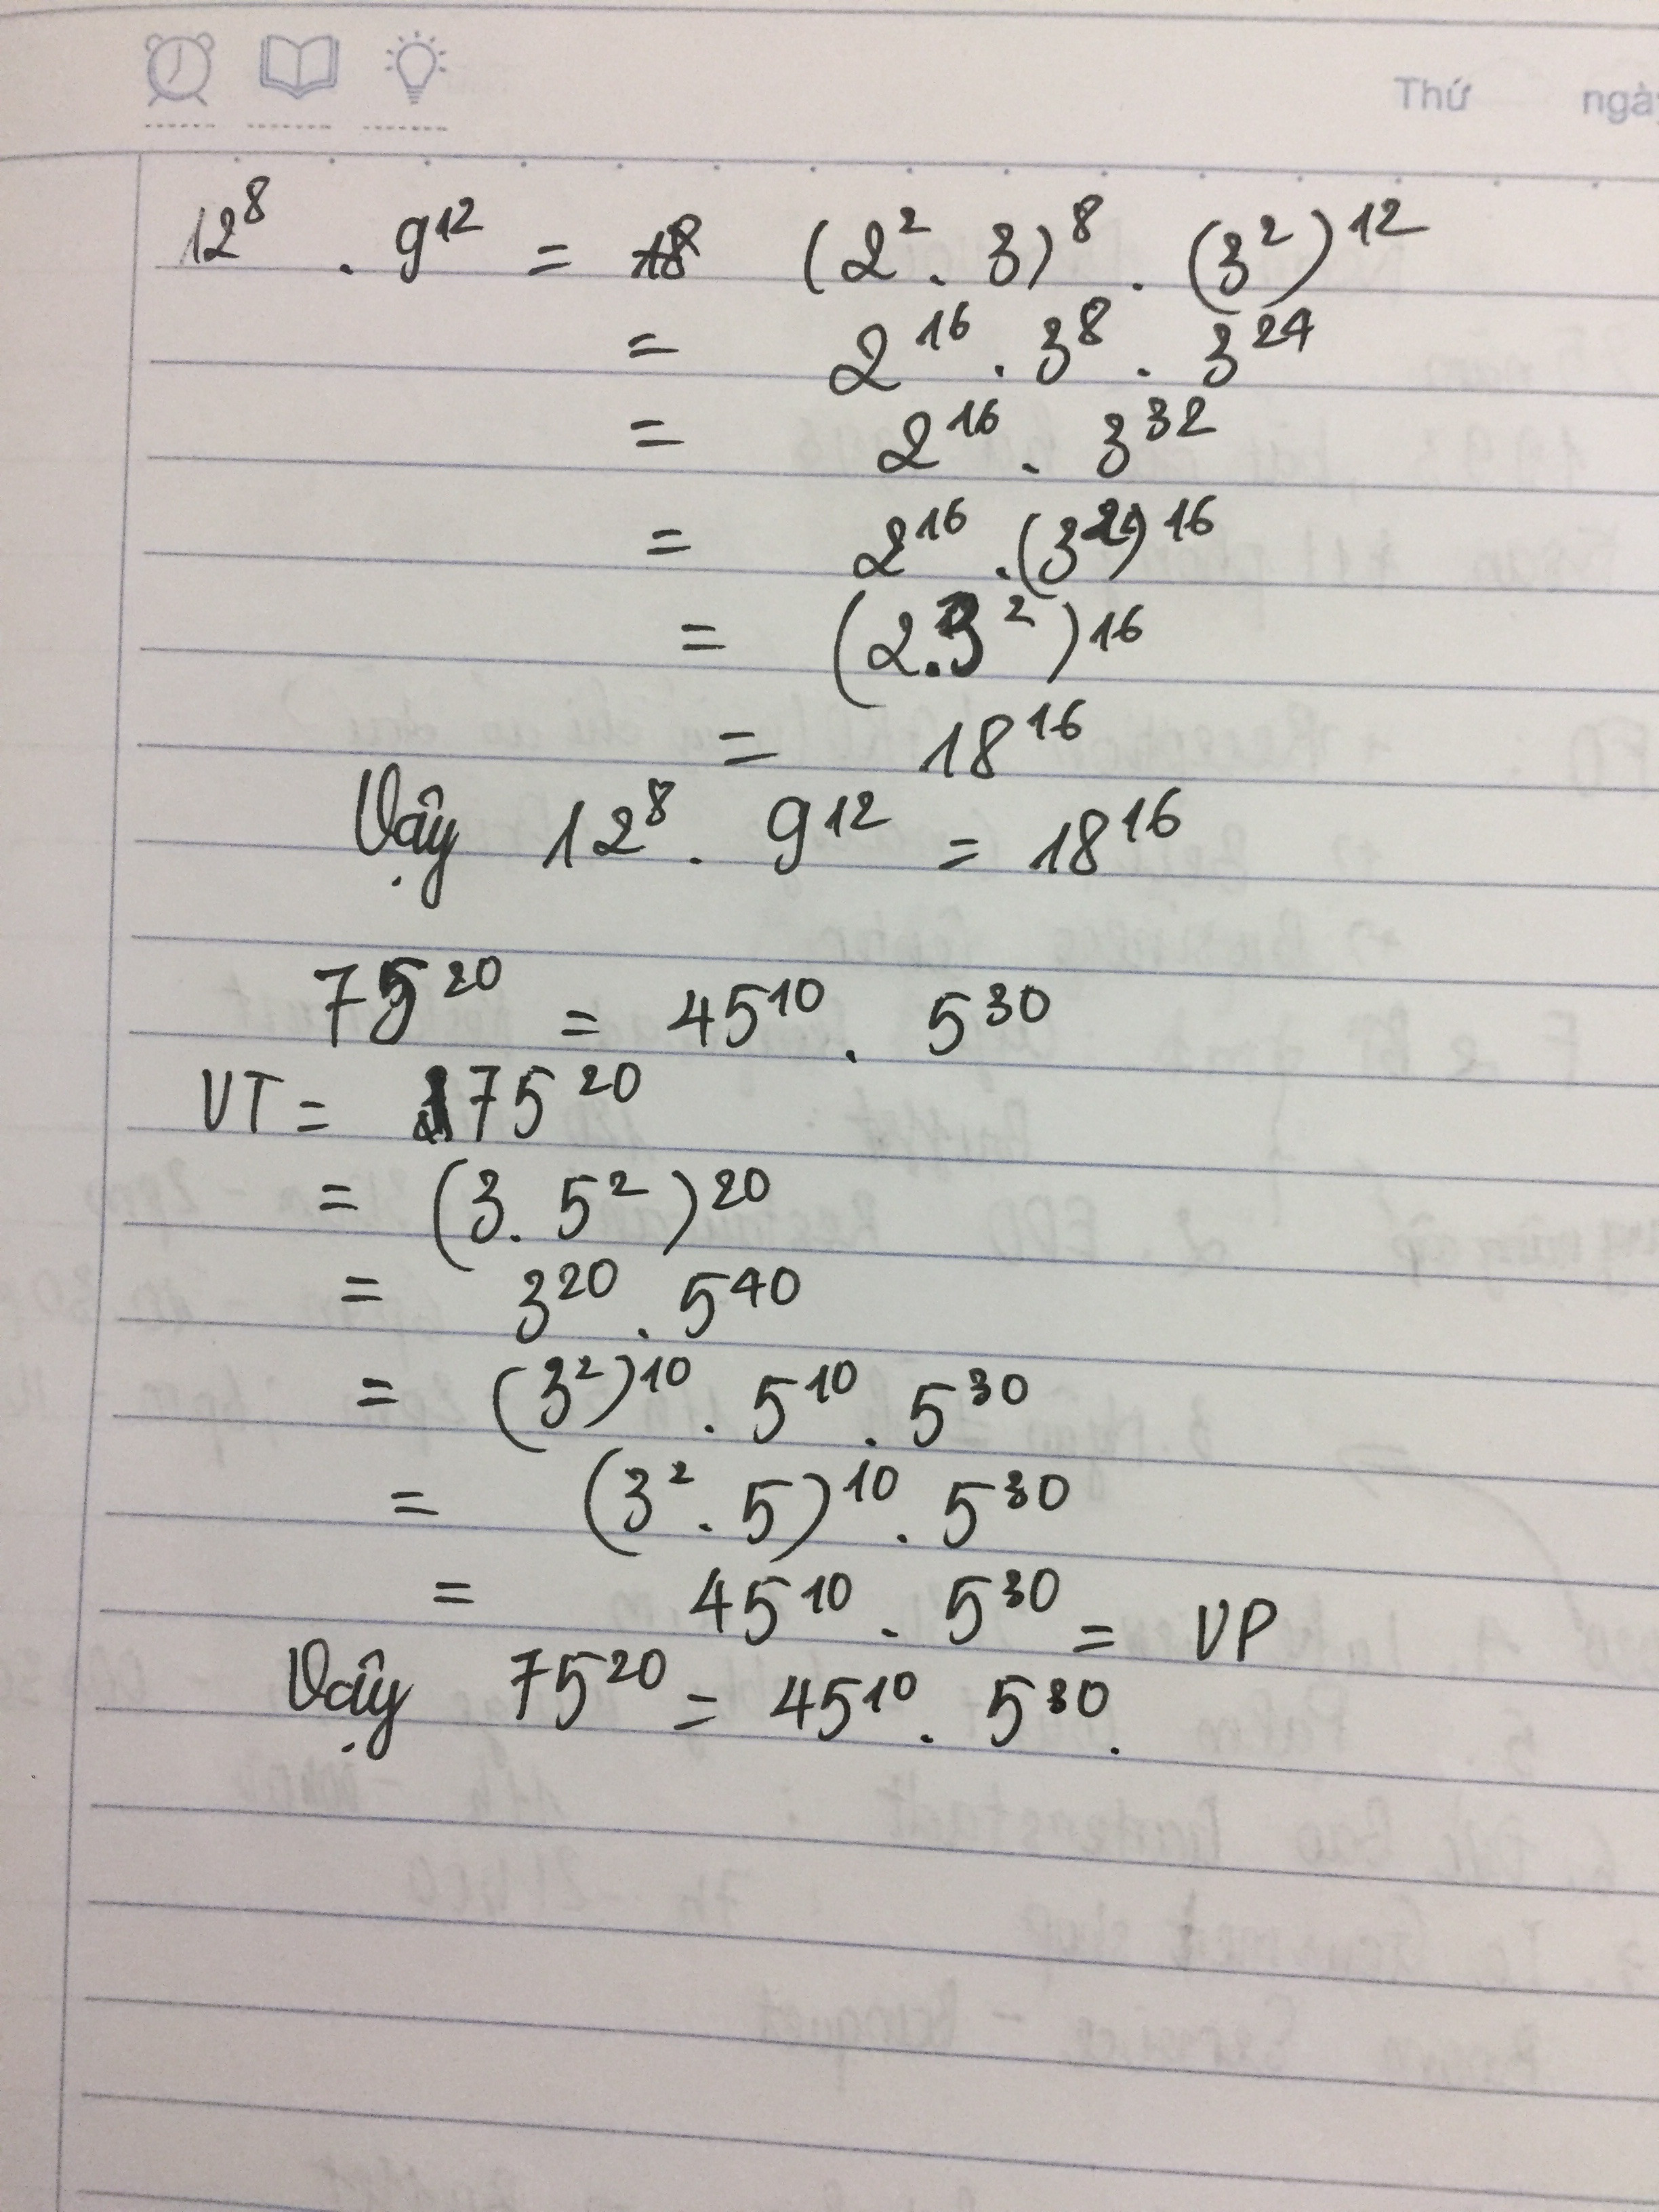 Thứ ngày
12⁸ . 9¹² = (2² . 3)⁸ . (3²)¹²
= 2¹⁶ . 3⁸ . 3²⁴
= 2¹⁶ . 3³²
= 2¹⁶ . (3²)¹⁶
= (2.3²)¹⁶
= 18¹⁶
Vậy 12⁸ . 9¹² = 18¹⁶
75²⁰ = 45¹⁰ . 5³⁰
VT = 75²⁰
= (3 . 5²)²⁰
= 3²⁰ . 5⁴⁰
= (3²)¹⁰ . 5¹⁰ . 5³⁰
= (3² . 5)¹⁰ . 5³⁰
= 45¹⁰ . 5³⁰ = VP
Vậy 75²⁰ = 45¹⁰ . 5³⁰.